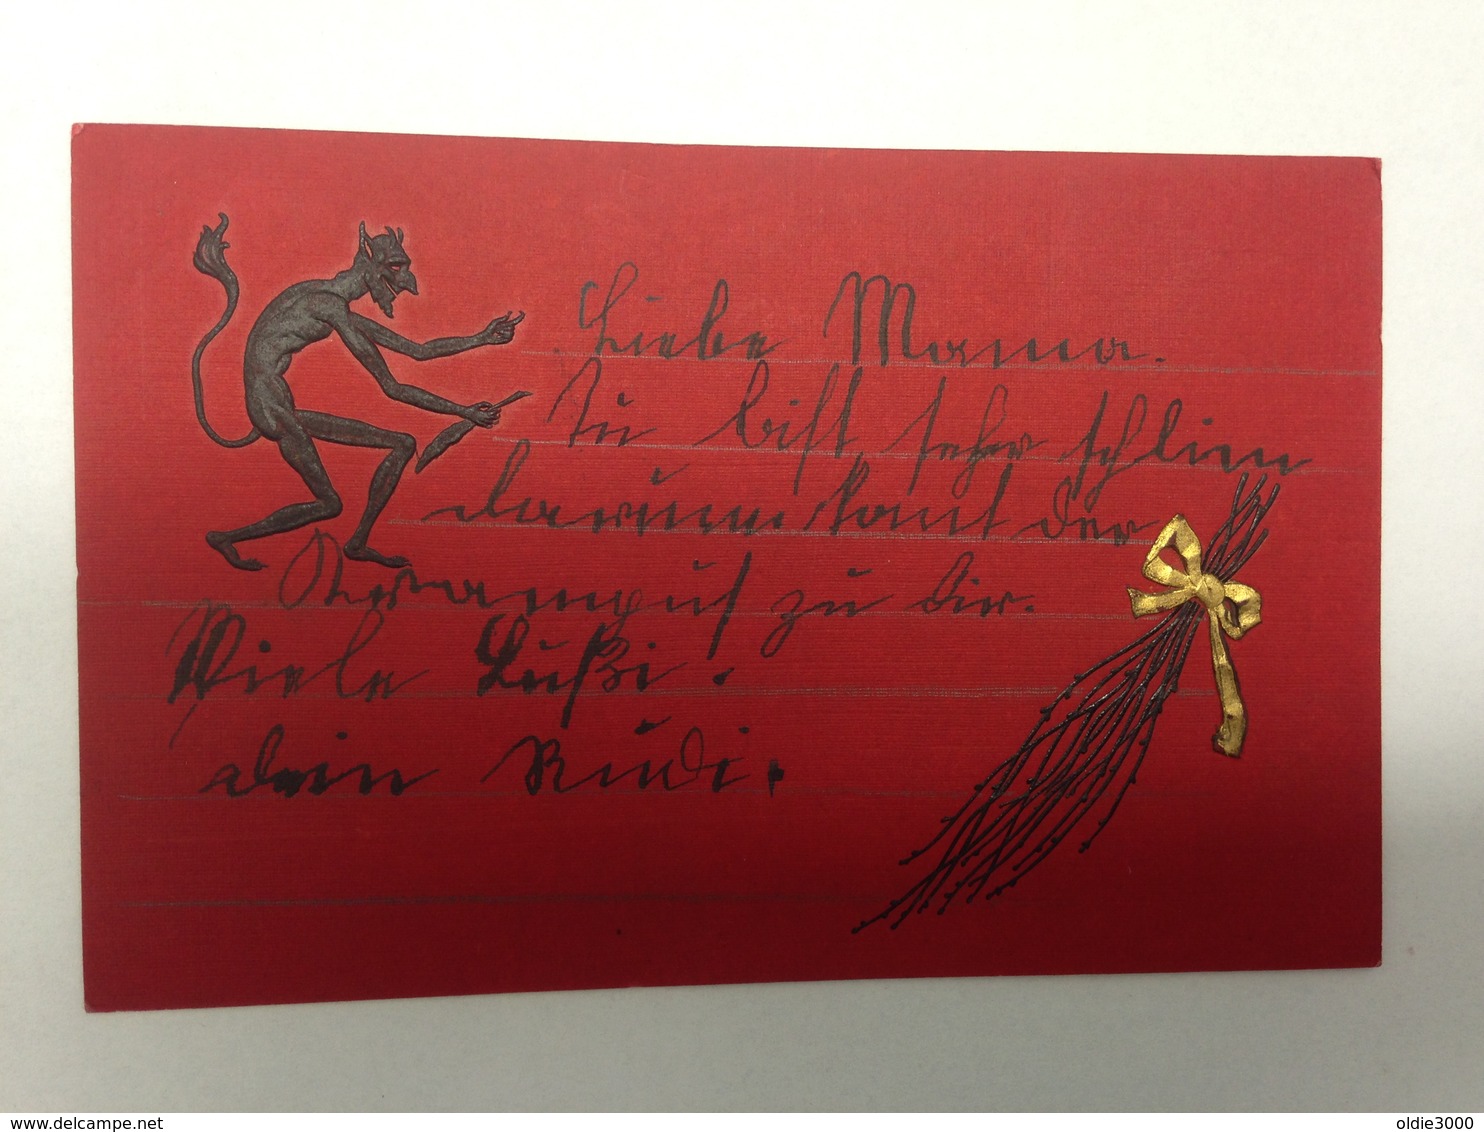 Liebe Mama.
Du bist sehr schlim
darum komt der
Krampus zu Dir.
Viele Bußi.
dein Rudi.
oldie3000